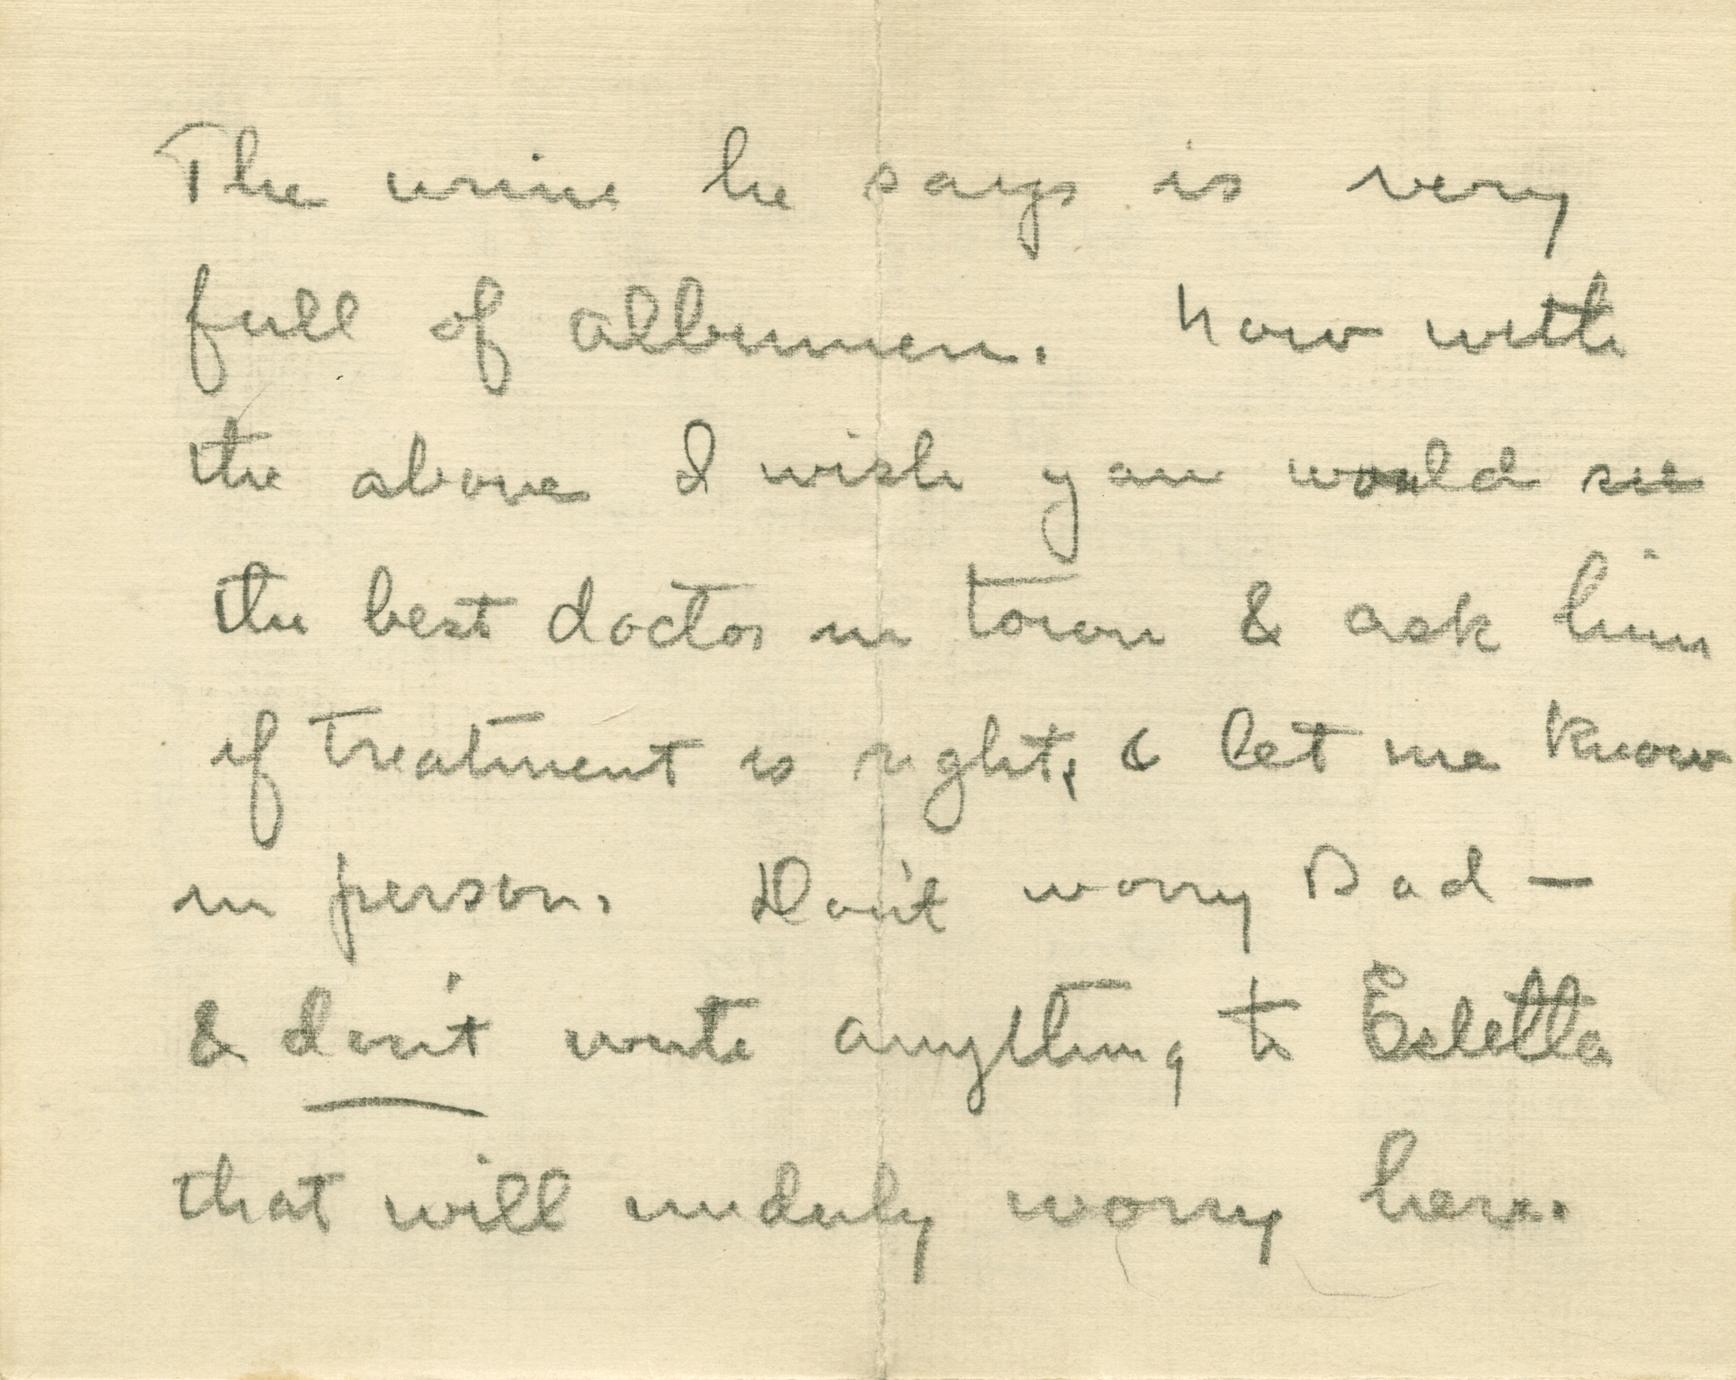 The urine he says is very
full of albumen. Now with
the above I wish you would see
the best doctor in town & ask him
if treatment is right, & let me know
in person. Don't worry Dad —
& don't write anything to Esletta
that will unduly worry her.